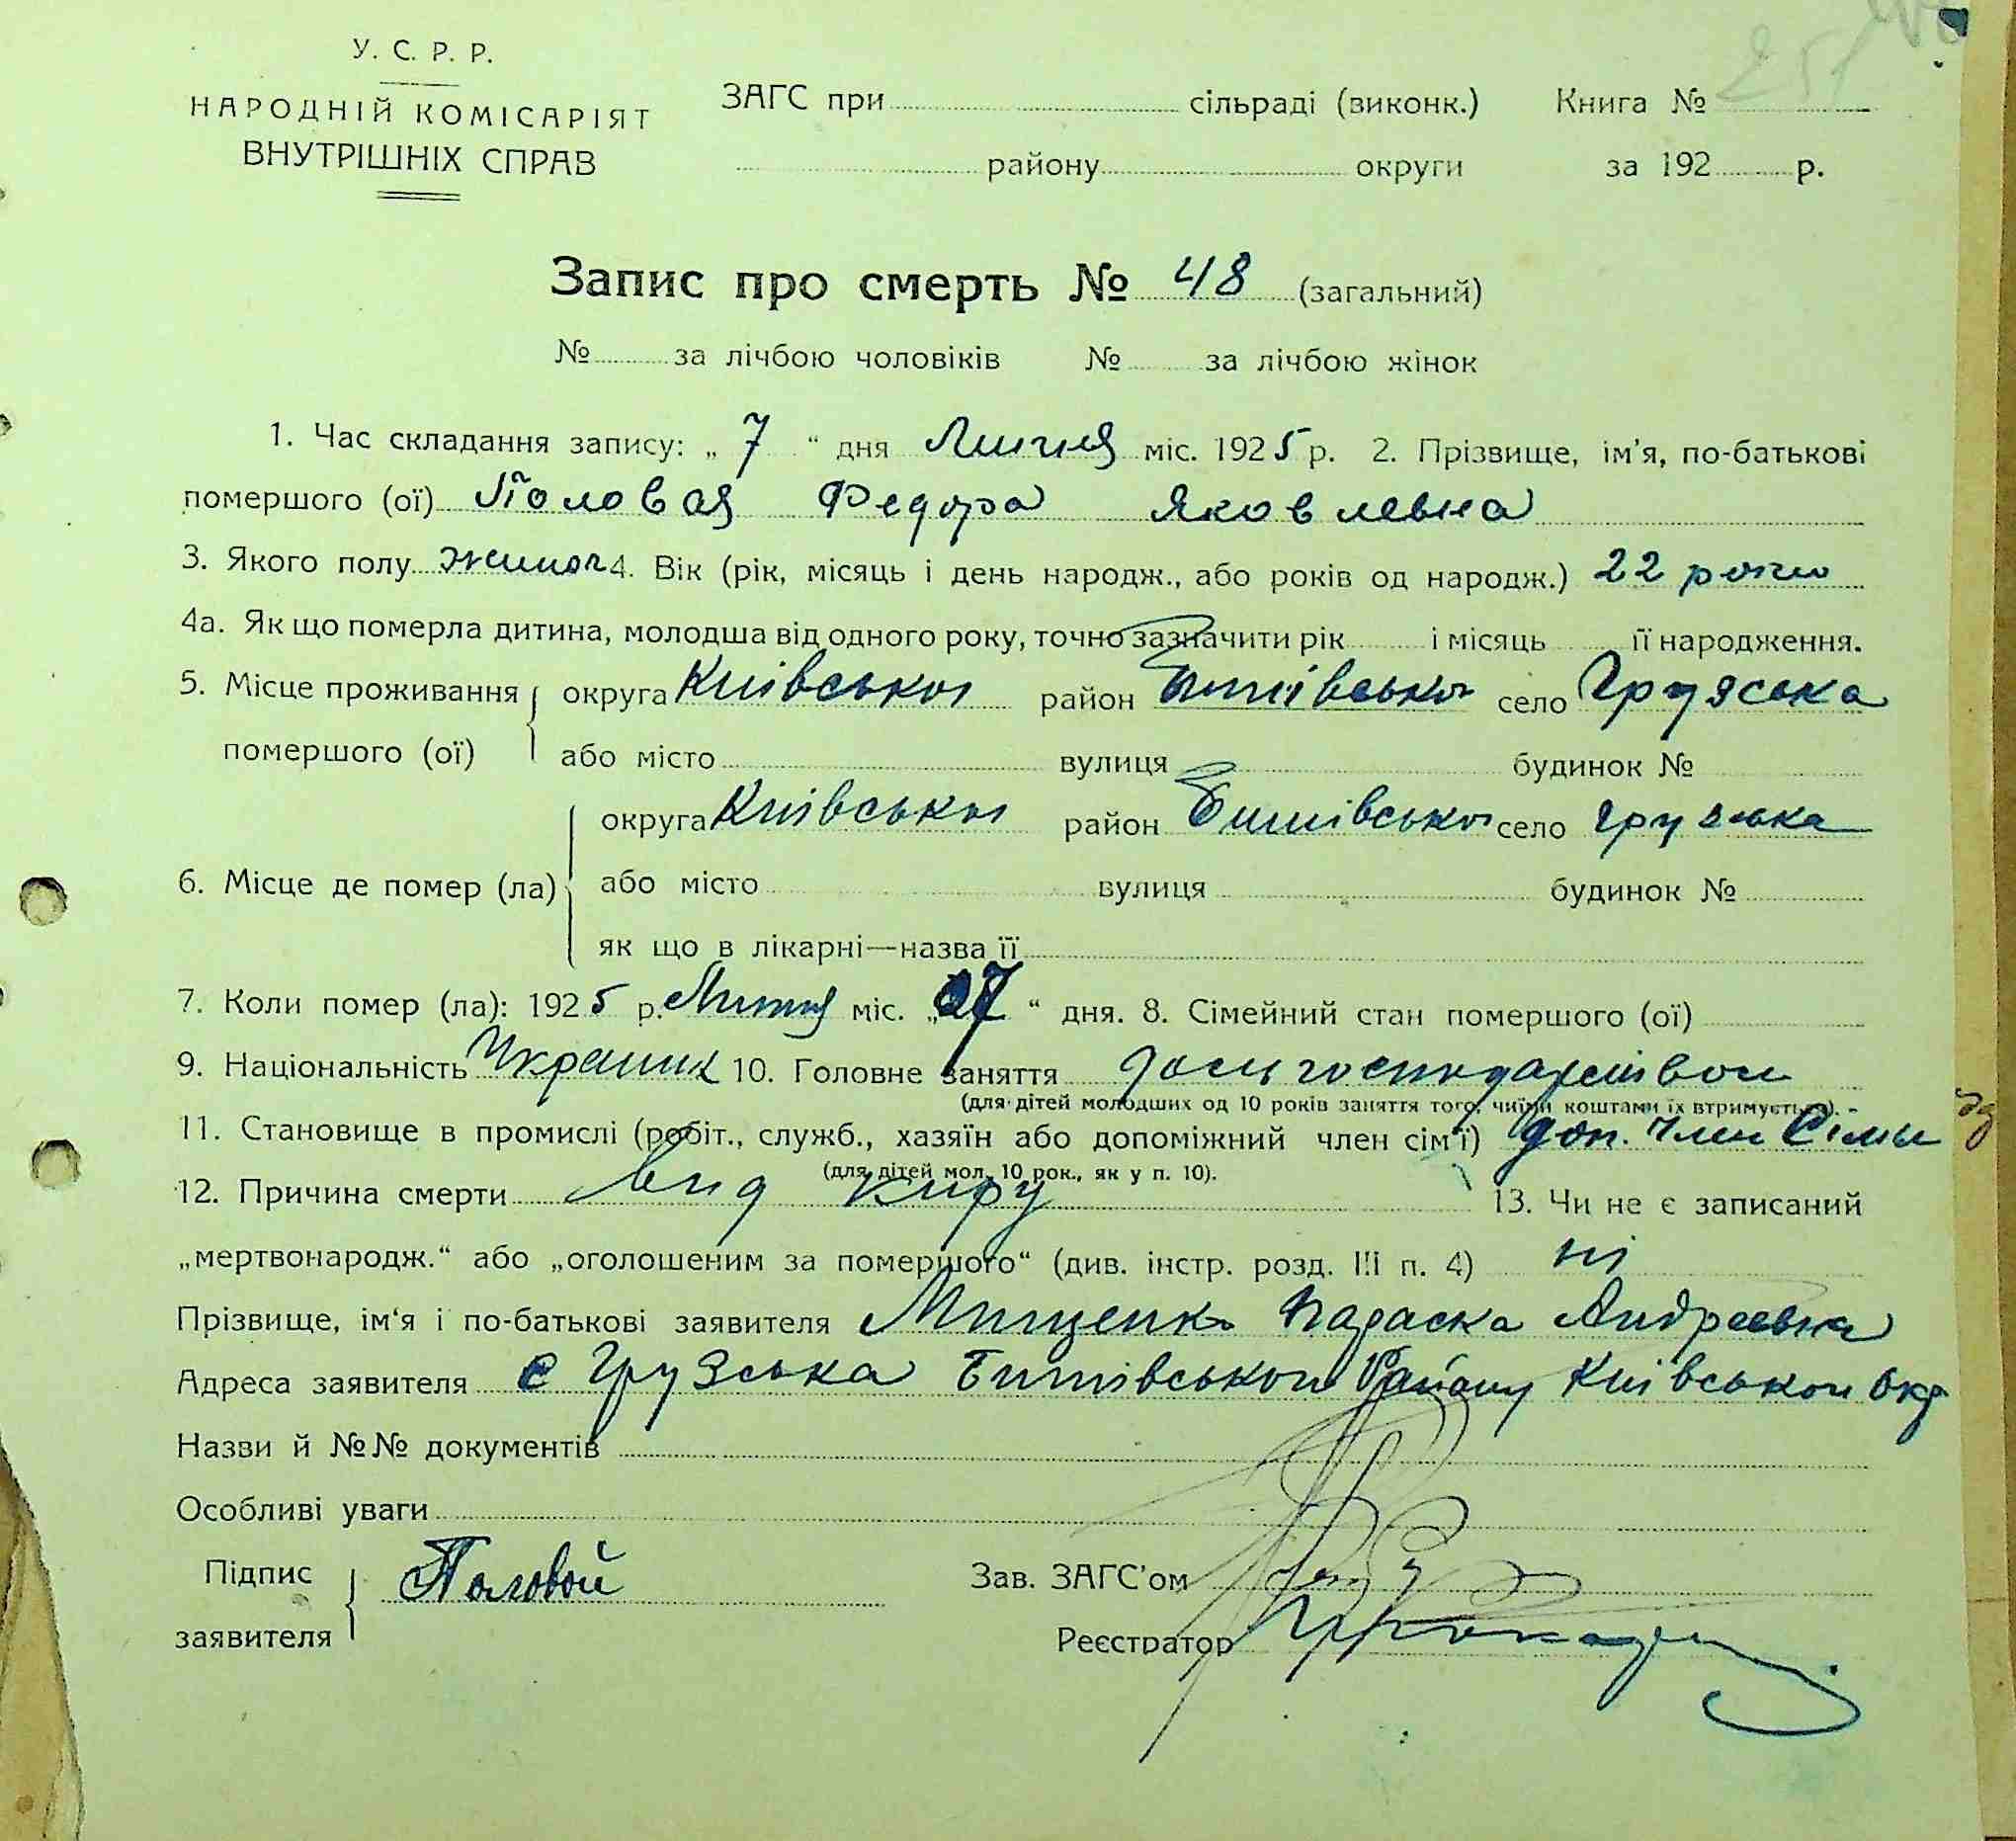 251
У. С. Р. Р.
НАРОДНІЙ КОМІСАРІЯТ
ВНУТРІШНІХ СПРАВ
ЗАГС при сільраді (виконк.) Книга №
району округи за 192 р.
Запис про смерть № 48 (загальний)
№ за лічбою чоловіків № за лічбою жінок
1. Час складання запису: „ 7 “ дня Липня міс. 1925 р. 2. Прізвище, ім'я, по-батькові
помершого (ої) Половая Федора Яковлевна
3. Якого полу жиноч 4. Вік (рік, місяць і день народж., або років од народж.) 22 роки
4а. Як що померла дитина, молодша від одного року, точно зазначити рік і місяць її народження.
5. Місце проживання округа Київської район Бишівської село Грузська
помершого (ої) або місто вулиця будинок №
округа Київської район Бишівської село Грузька
6. Місце де помер (ла) або місто вулиця будинок №
як що в лікарні—назва її
7. Коли помер (ла): 1925 р. Липня міс. „07 “ дня. 8. Сімейний стан помершого (ої)
9. Національність Украинк 10. Головне заняття господарством
(для дітей молодших од 10 років заняття того, чиїми коштами їх втримується).
11. Становище в промислі (робіт., служб., хазяїн або допоміжний член сім'ї) доп. член Сімьи
(для дітей мол. 10 рок., як у п. 10).
12. Причина смерти вид киру 13. Чи не є записаний
„мертвонародж.“ або „оголошеним за помершого“ (див. інстр. розд. III п. 4) ні
Прізвище, ім'я і по-батькові заявителя Мищенко Параска Андреевна
Адреса заявителя с Грузська Бишівської Району Київської Окр
Назви й №№ документів
Особливі уваги
Підпис Половой Зав. ЗАГС'ом
заявителя Реєстратор